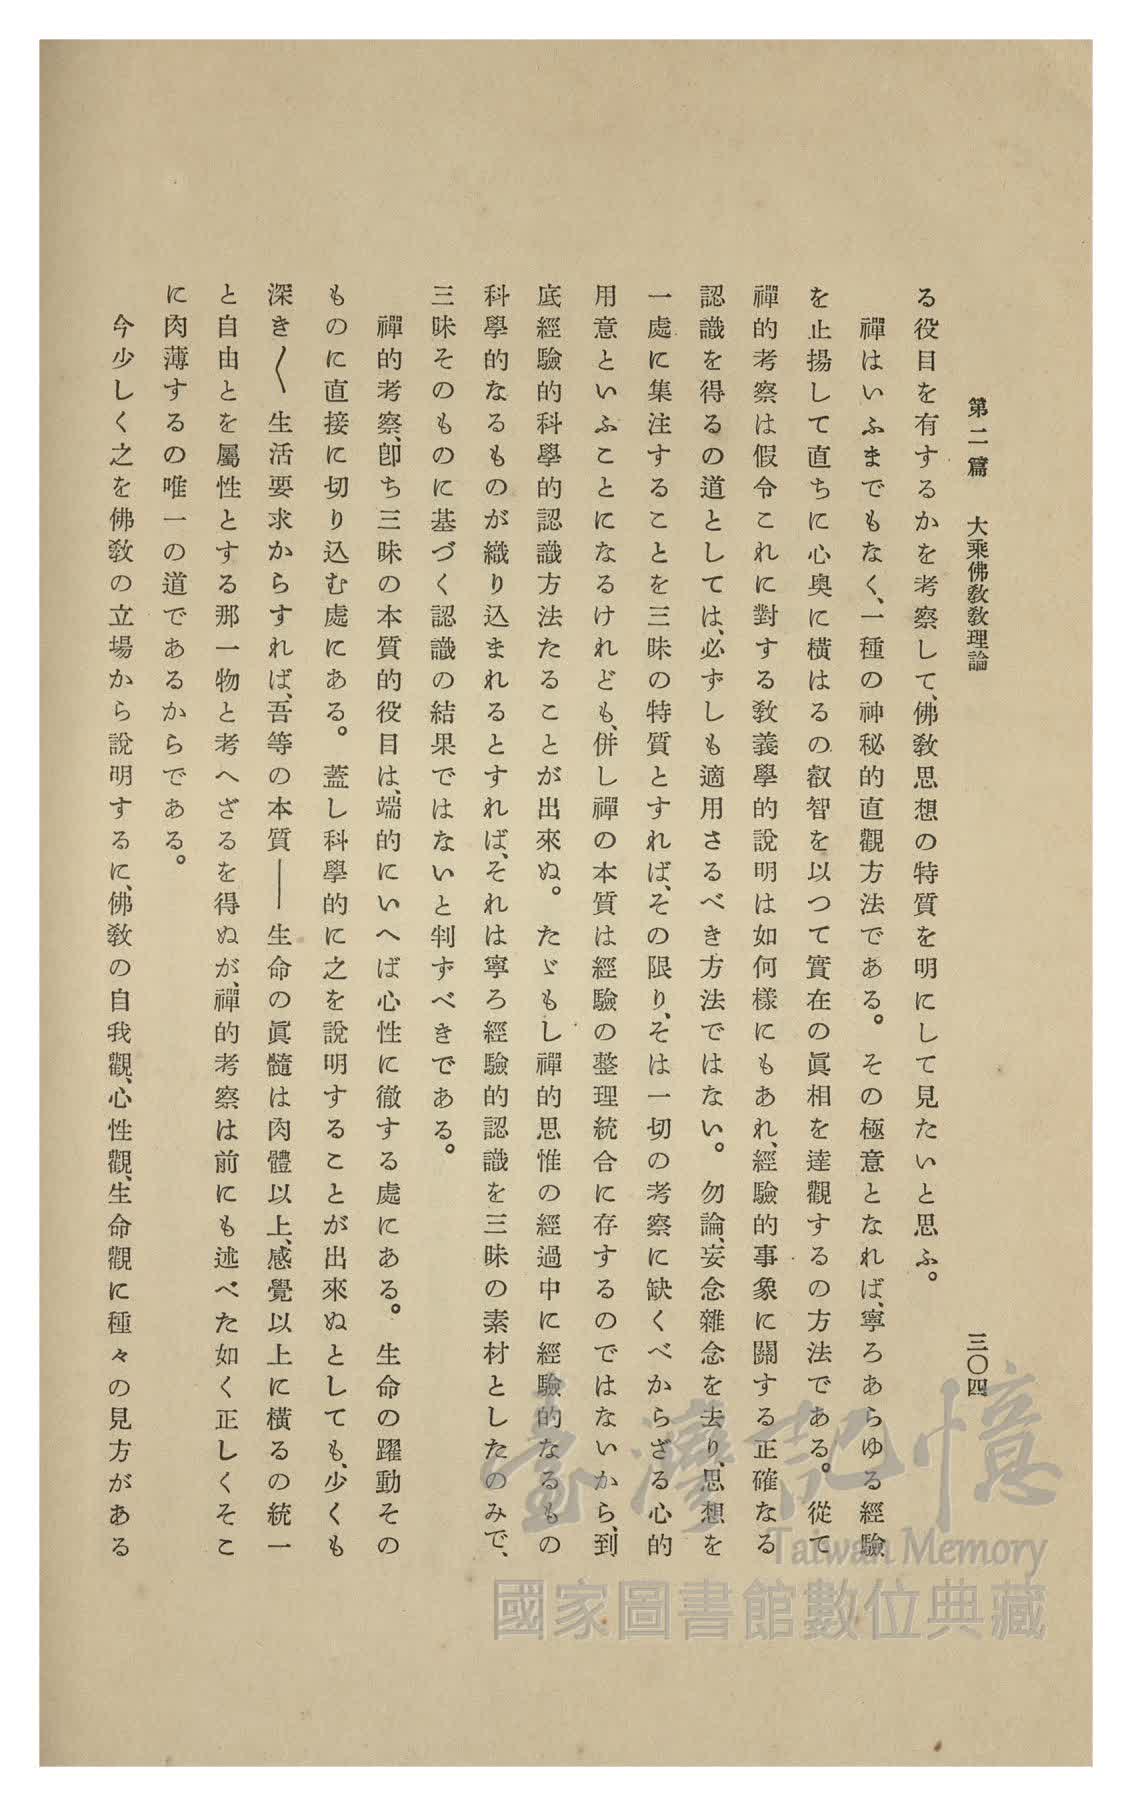 第二篇　大乘佛敎敎理論　三〇四
る役目を有するかを考察して、佛敎思想の特質を明にして見たいと思ふ。
禪はいふまでもなく、一種の神秘的直觀方法である。その極意となれば、寧ろあらゆる經驗
を止揚して直ちに心奥に橫はるの叡智を以つて實在の眞相を達觀するの方法である。從て
禪的考察は假令これに對する敎義學的說明は如何樣にもあれ、經驗的事象に關する正確なる
認識を得るの道としては、必ずしも適用さるべき方法ではない。勿論、妄念雜念を去り、思想を
一處に集注することを三昧の特質とすれば、その限り、そは一切の考察に缺くべからざる心的
用意といふことになるけれども、併し禪の本質は經驗の整理統合に存するのではないから、到
底經驗的科學的認識方法たることが出來ぬ。たゞもし禪的思惟の經過中に經驗的なるもの
科學的なるものが織り込まれるとすれば、それは寧ろ經驗的認識を三昧の素材としたのみで、
三昧そのものに基づく認識の結果ではないと判ずべきである。
禪的考察、卽ち三昧の本質的役目は、端的にいへば心性に徹する處にある。生命の躍動その
ものに直接に切り込む處にある。蓋し科學的に之を說明することが出來ぬとしても、少くも
深き〱生活要求からすれば、吾等の本質——生命の眞髓は肉體以上、感覺以上に橫るの統一
と自由とを屬性とする那一物と考へざるを得ぬが、禪的考察は前にも述べた如く正しくそこ
に肉薄するの唯一の道であるからである。
今少しく之を佛敎の立場から說明するに、佛敎の自我觀、心性觀、生命觀に種々の見方がある
臺灣記憶
Taiwan Memory
國家圖書館數位典藏